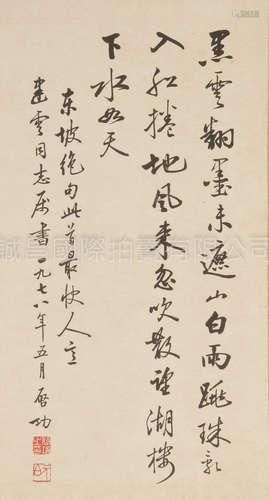 黑雲翻墨未遮山白雨跳珠亂
入船捲地風来忽吹散望湖樓
下水如天
东坡絶句此首最快人意
建雲同志属書一九七八年五月啓功
誠昌國際拍賣有限公司